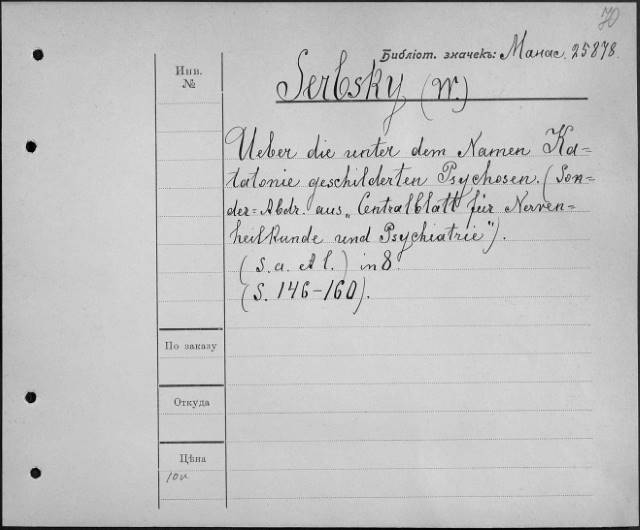 70
Библіот. значекъ: Манас. 25878.
Инв.
№
Serbsky (W.)
Ueber die unter dem Namen Ka=
tatonie geschilderten Psychosen. (Son=
der=Abdr. aus „Centralblatt für Nerven=
heilkunde und Psychiatrie").
(S. a. et l.) in 8.
(S. 146-160).
По заказу
Откуда
Цѣна